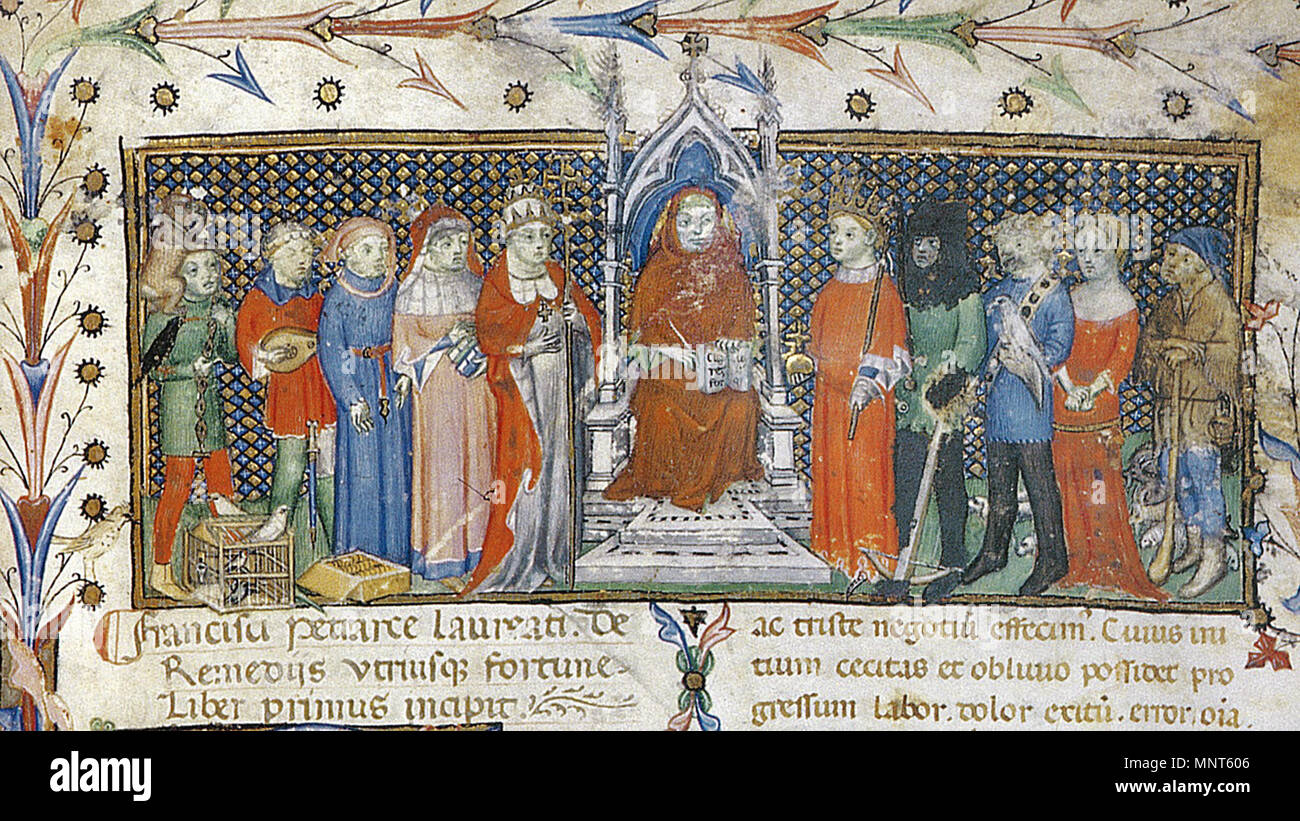 Francisci petrarce laureati. De
Remedijs vtriusq fortune
Liber primus incipit.
ac triste negotiu effecim. Cuius ini
tium cecitas et obliuio possidet pro
gressum labor. dolor exitu. error. oia.
alamy
Image ID: MNT606
www.alamy.com